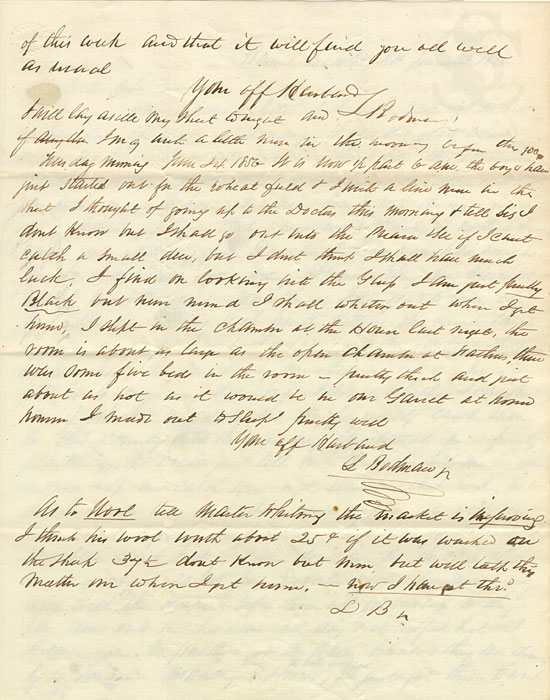 of this week and that it will find you all well
as usual
Your aff Husband
I will lay aside my sheet tonight and L Bodman
if I may write a little more in the morning before
Thursday morning June 1856 It is now ½ past 6 am. the boys have
just started out for the wheat field & I write a line more in the
I thought of going up to the Doctors this morning & tell Sis I
dont know but I shall go out into the Prairie see if I cant
catch a small deer, but I dont think I shall have much
luck. I find on looking into the Glass I am just pretty
Black but never mind I shall whiten out when I get
home, I slept in the chamber at the House last night, the
room is about as large as the open chamber at there
was some five beds in the room — pretty thick and just
about as hot as it would be in our Garret at home
however I made out to sleep pretty well
Your aff Husband
L Bodman jr
As to Wool tell Master Whitney the market is improving
I think his wool worth about 25¢ if it was washed on
the sheep dont know but more, but will talk this
matter over when I get home. — now I have got thro'
L B jr